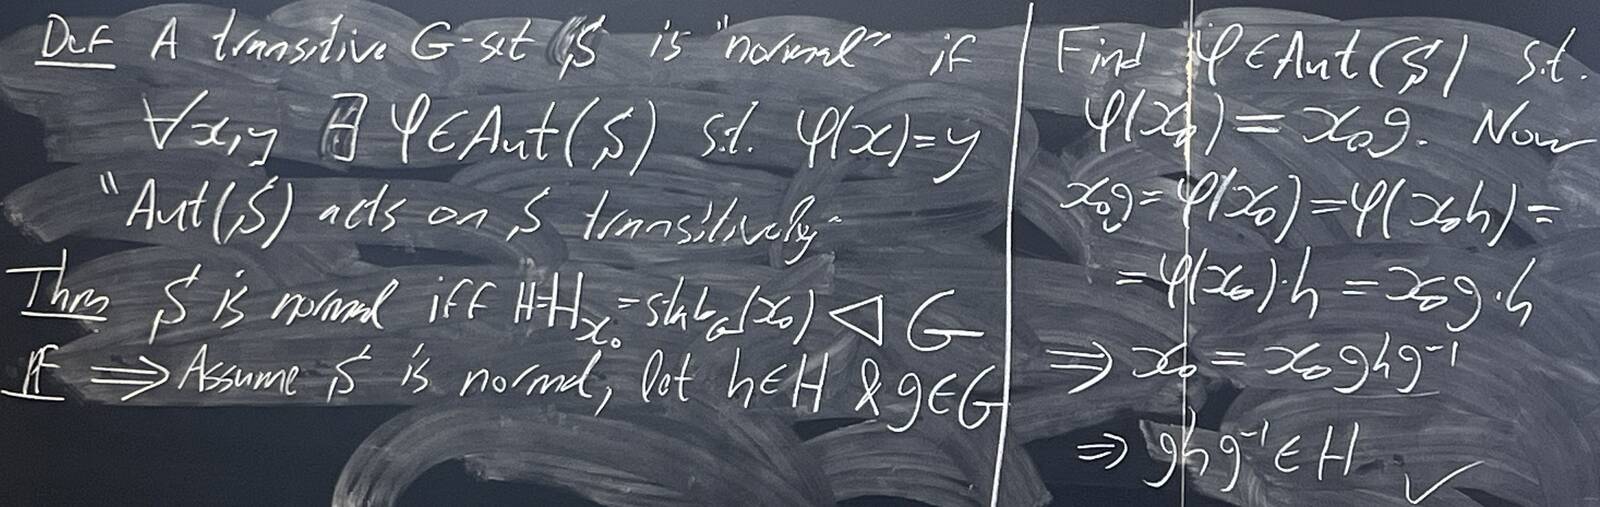 Def A transitive G-set S is "normal" if
∀x,y ∃ φ∈Aut(S) s.t. φ(x)=y
"Aut(S) acts on S transitively"
Thm S is normal iff H=H_{x_0}=stab_G(x_0) ◁ G
Pf ⟹ Assume S is normal, let h∈H & g∈G
Find φ∈Aut(S) s.t.
φ(x_0)=x_0g. Now
x_0g=φ(x_0)=φ(x_0h)=
=φ(x_0)·h=x_0g·h
⟹ x_0=x_0ghg^{-1}
⟹ ghg^{-1}∈H ✓